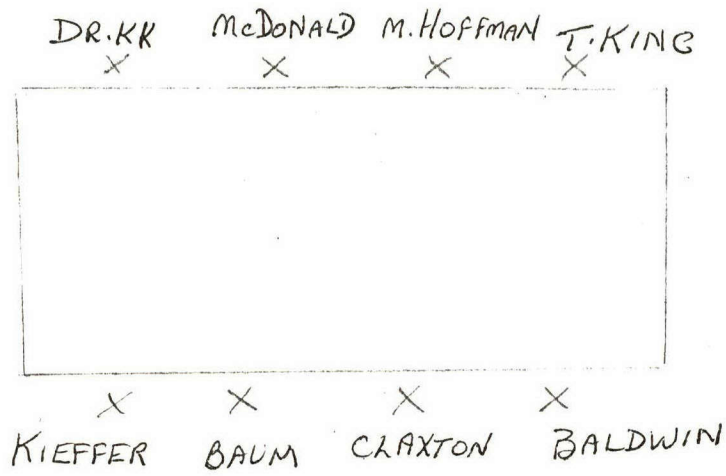 DR.KK McDONALD M.HOFFMAN T.KING
X X X X
X X X X
KIEFFER BAUM CLAXTON BALDWIN